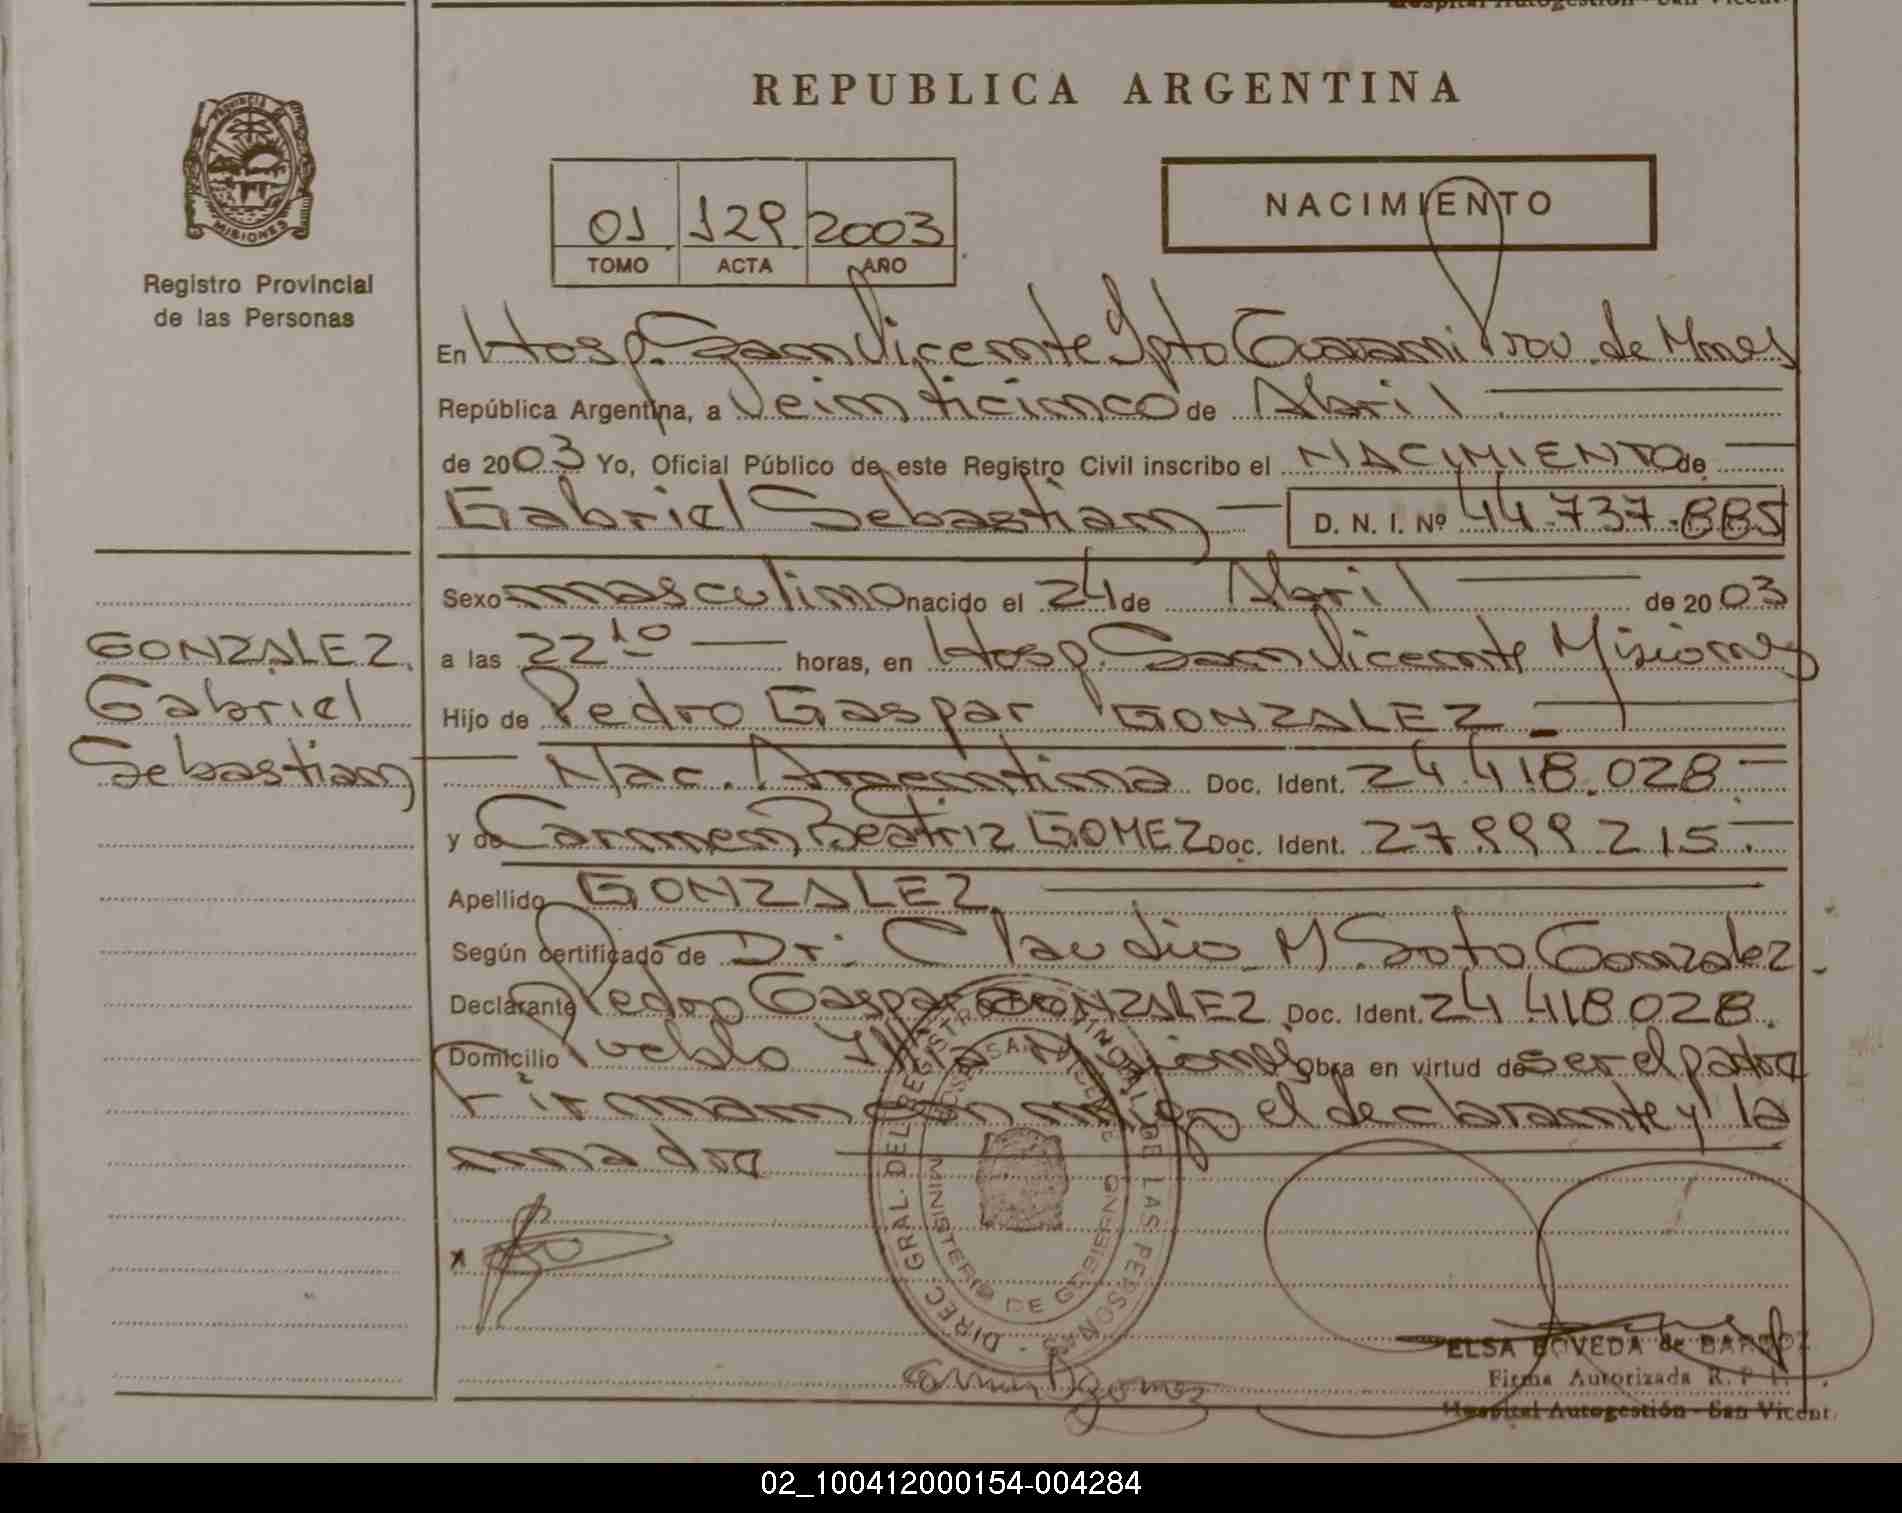 Hospital Autogestión - San Vicent.
REPUBLICA ARGENTINA
PROVINCIA DE
MISIONES
Registro Provincial
de las Personas
01 129 2003
TOMO ACTA AÑO
NACIMIENTO
En Hosp. San Vicente Dpto Guarani Prov. de Mnes
República Argentina, a Veinticinco de Abril
de 2003 Yo, Oficial Público de este Registro Civil inscribo el NACIMIENTO de
Gabriel Sebastian D. N. I. Nº 44.737.885
Sexo masculino nacido el 24 de Abril de 2003
GONZALEZ
Gabriel
Sebastian
a las 22 10 horas, en Hosp. San Vicente Misiones
Hijo de Pedro Gaspar GONZALEZ
Nac. Argentina Doc. Ident. 24.418.028
y de Carmen Beatriz GOMEZ Doc. Ident. 27.999.215
Apellido GONZALEZ
Según certificado de Dr. Claudio M. Soto Gonzalez
Declarante Pedro Gaspar GONZALEZ Doc. Ident. 24 418 028.
Domicilio Pueblo Illia Misiones Obra en virtud de ser el padre
Firman conmigo el declarante y la
madre
DIREC. GRAL. DEL REGISTRO PROVINCIAL DE LAS PERSONAS
HOSP. SAN VICENTE
MINISTERIO DE GOBIERNO
x
Carmen B gomez
ELSA BOVEDA de
Firma Autorizada R. P. P.
Hospital Autogestión - San Vicent.
02_100412000154-004284